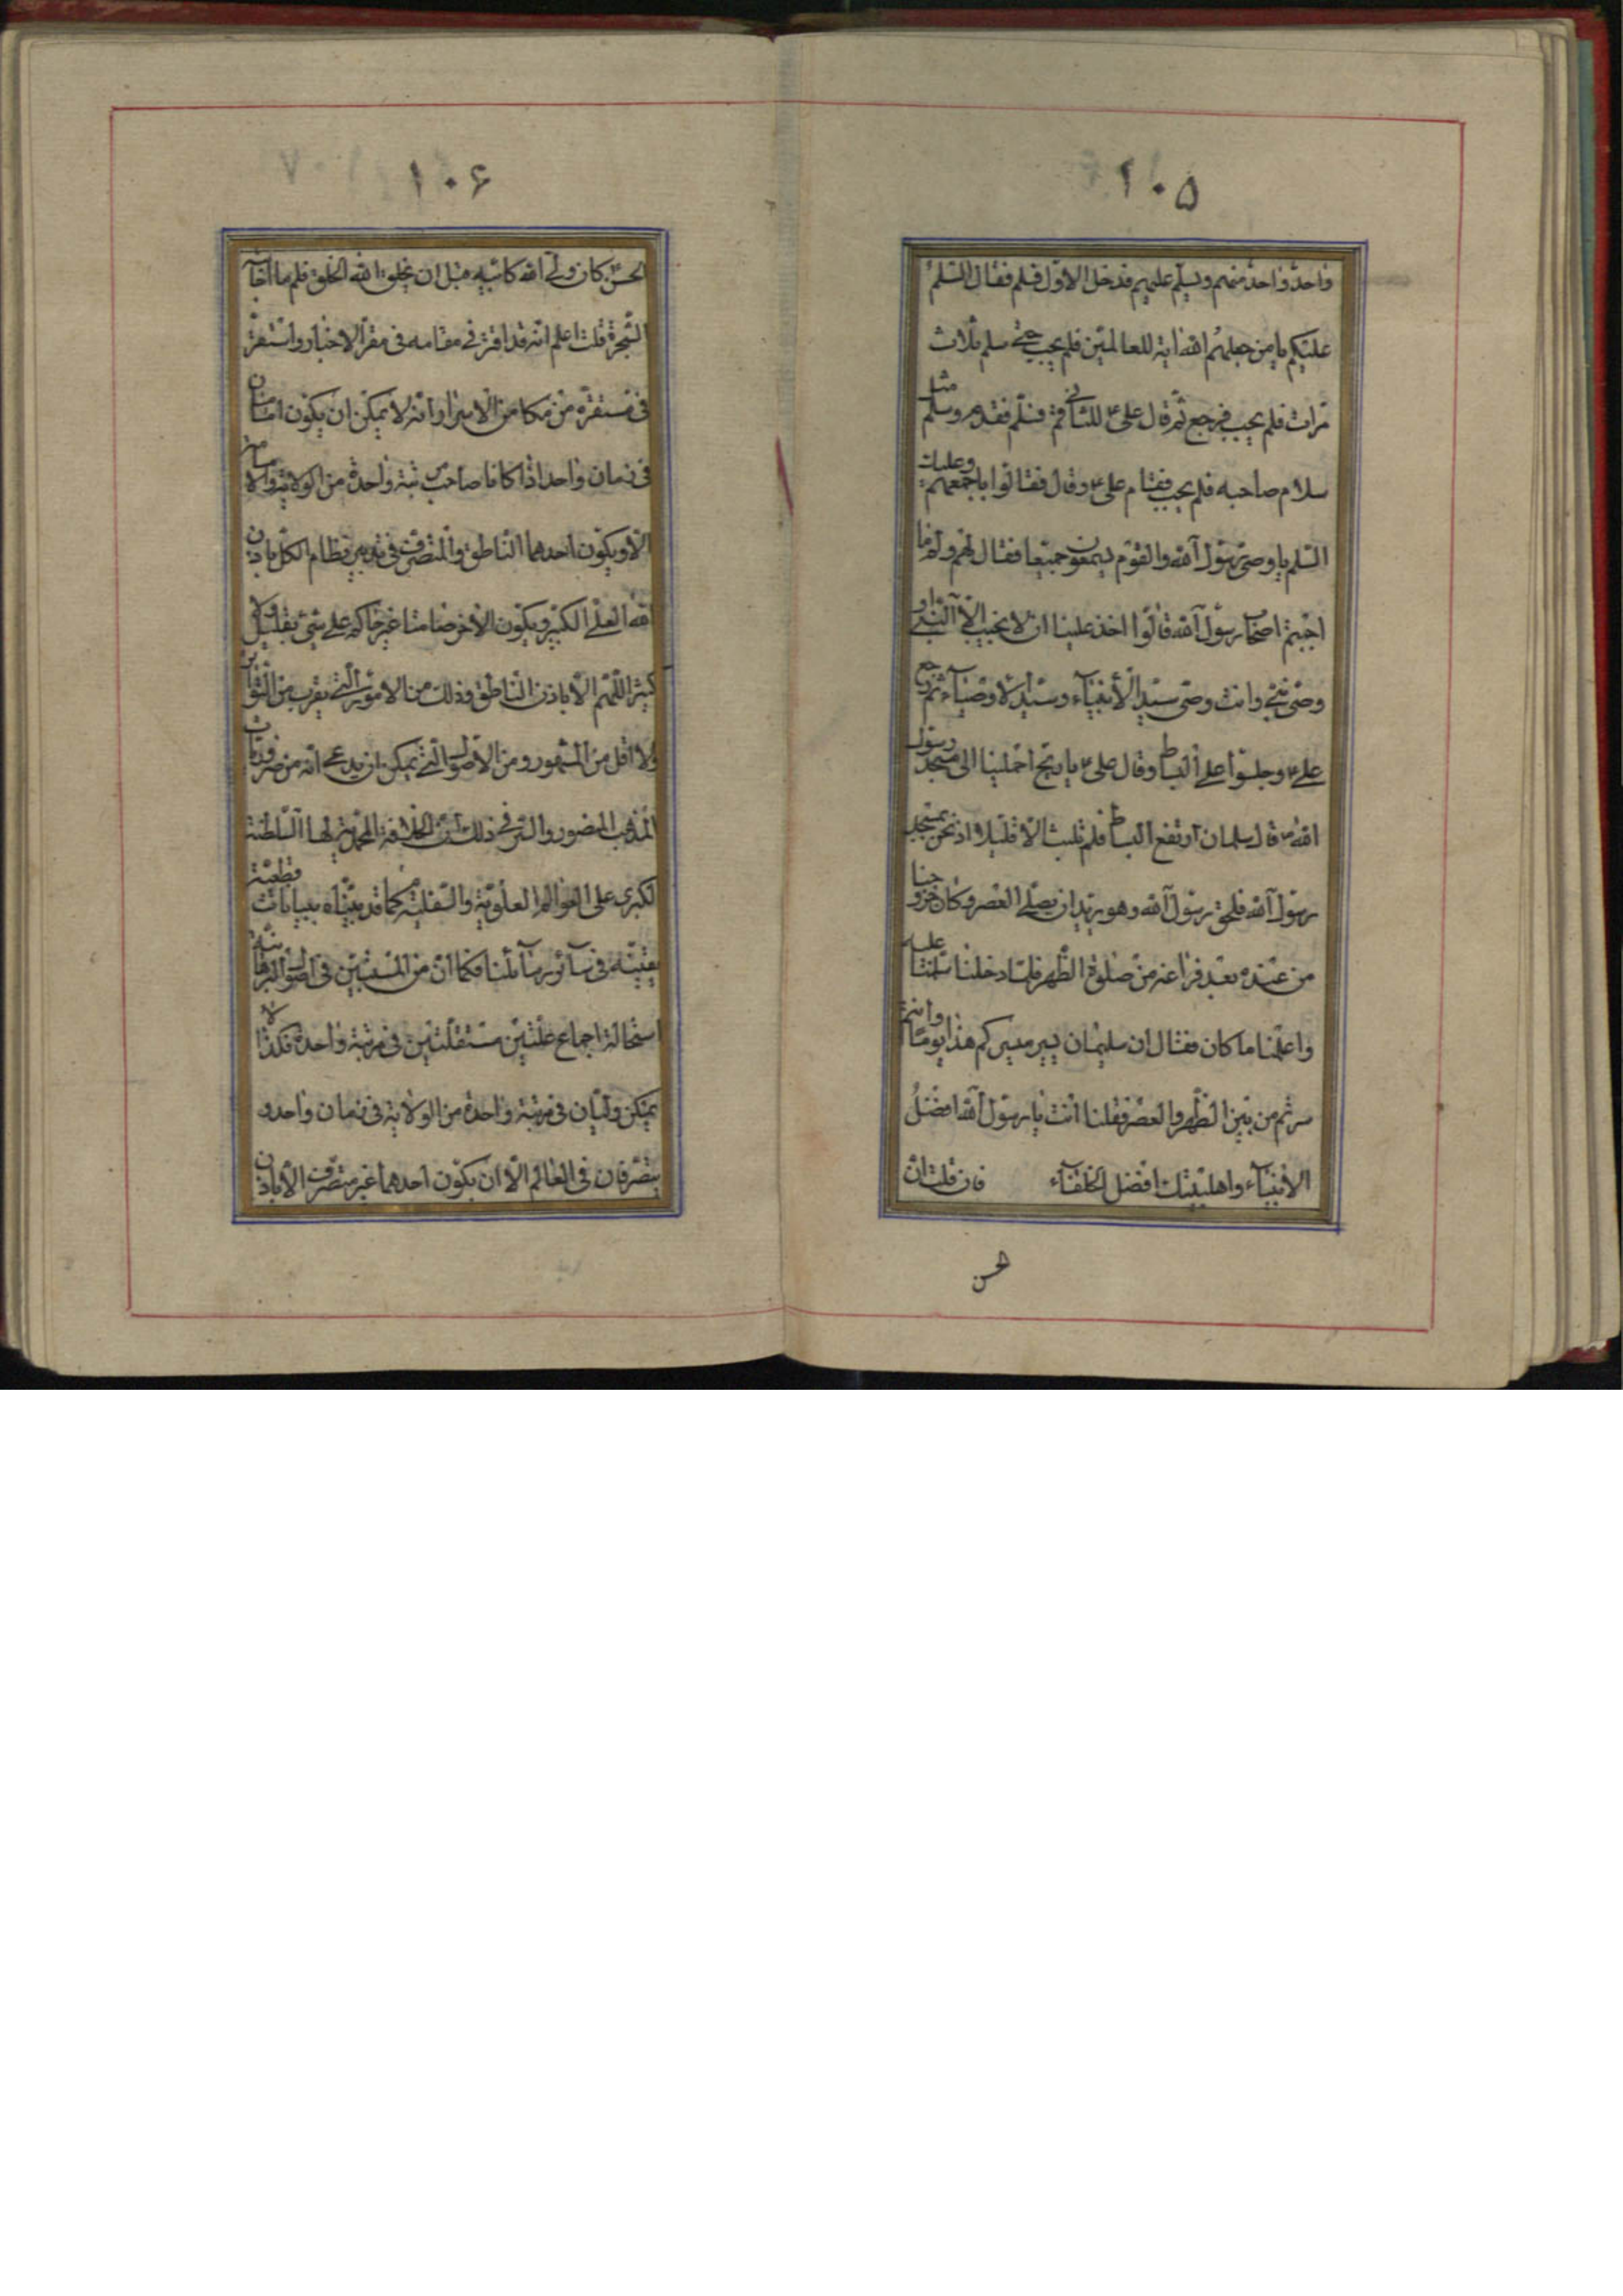 ١٠٥
واحد واحد منهم ويسلم عليهم فدخل الاول فسلم فقال السلم
عليكم يا من جعلهم الله اية للعالمين فلم يجب حتى سلم ثلاث
مرات فلم يجب فرجع ثم قال علي ع للثاني قم فسلم فقدم وسلم مثل
سلام صاحبه فلم يجب فقام علي ع وقال فقالوا باجمعهم وعليك
السلم يا وصي رسول الله والقوم يسمعون جميعا فقال لهم ولم ما
اجبتم اصحاب رسول الله قالوا اخذ علينا ان لا نجيب الا النبي او
وصي نبي وانت وصي سيد الأنبياء وسيد الاوصياء ثم رجع
علي ع وجلسوا على البساط وقال علي ع يا ريح احملينا الى مسجد رسول
الله ص قال سلمان ارتفع البساط فلم نلبث الا قليلا اذ نحن بمسجد
رسول الله فلحق رسول الله وهو يريد ان يصلي العصر وكان خروجنا
من عنده بعد فراغه من صلوة الظهر فلما دخلنا سلمنا عليه
واعلمنا ما كان فقال ان سليمان يسير مسيركم هذا يوما وانتم
سرتم من بين الظهر والعصر فقلنا انت يا رسول الله افضل
الانبياء واهلبيتك افضل الخلفاء فان قلت ان
الحسن
١٠٦
الحسن كان ولي الله كابيه قبل ان يخلق الله الخلق فلم ما اجاب
الشجرة قلت اعلم انه قد اقر في مقامه في مقر الاخبار واستقر
في مستقره من مكامن الاسرار انه لا يمكن ان يكون امامان
في زمان واحد اذا كانا صاحب رتبة واحدة من الولاية والامر
الا ويكون احدهما الناطق والمتصرف في تدبير نظام الكل باذن
الله العلي الكبير ويكون الآخر صامتا غير حاكم على شئ بقليل ولا
كثير اللهم الا باذن الناطق وذلك من الامور التي يقرب من التواتر
ولا اقل من المشهور ومن الاصول التي يمكن ان يدعى انه من ضروريات
المذهب المنصور والسر في ذلك ان الخلافة المحمدية لها السلطنة
الكبرى على العوالم العلوية والسفلية كما قد بيناه ببيانات قطعية
يقينية في سائر رسائلنا فكما ان من المستبين في اصول البرهانية
استحالة اجماع علتين مستقلتين في مرتبة واحدة فكذا لا
يمكن وليان في مرتبة واحدة من الولاية في زمان واحد و
يتصرفان في العالم الا ان يكون احدهما غير متصرف الا باذن